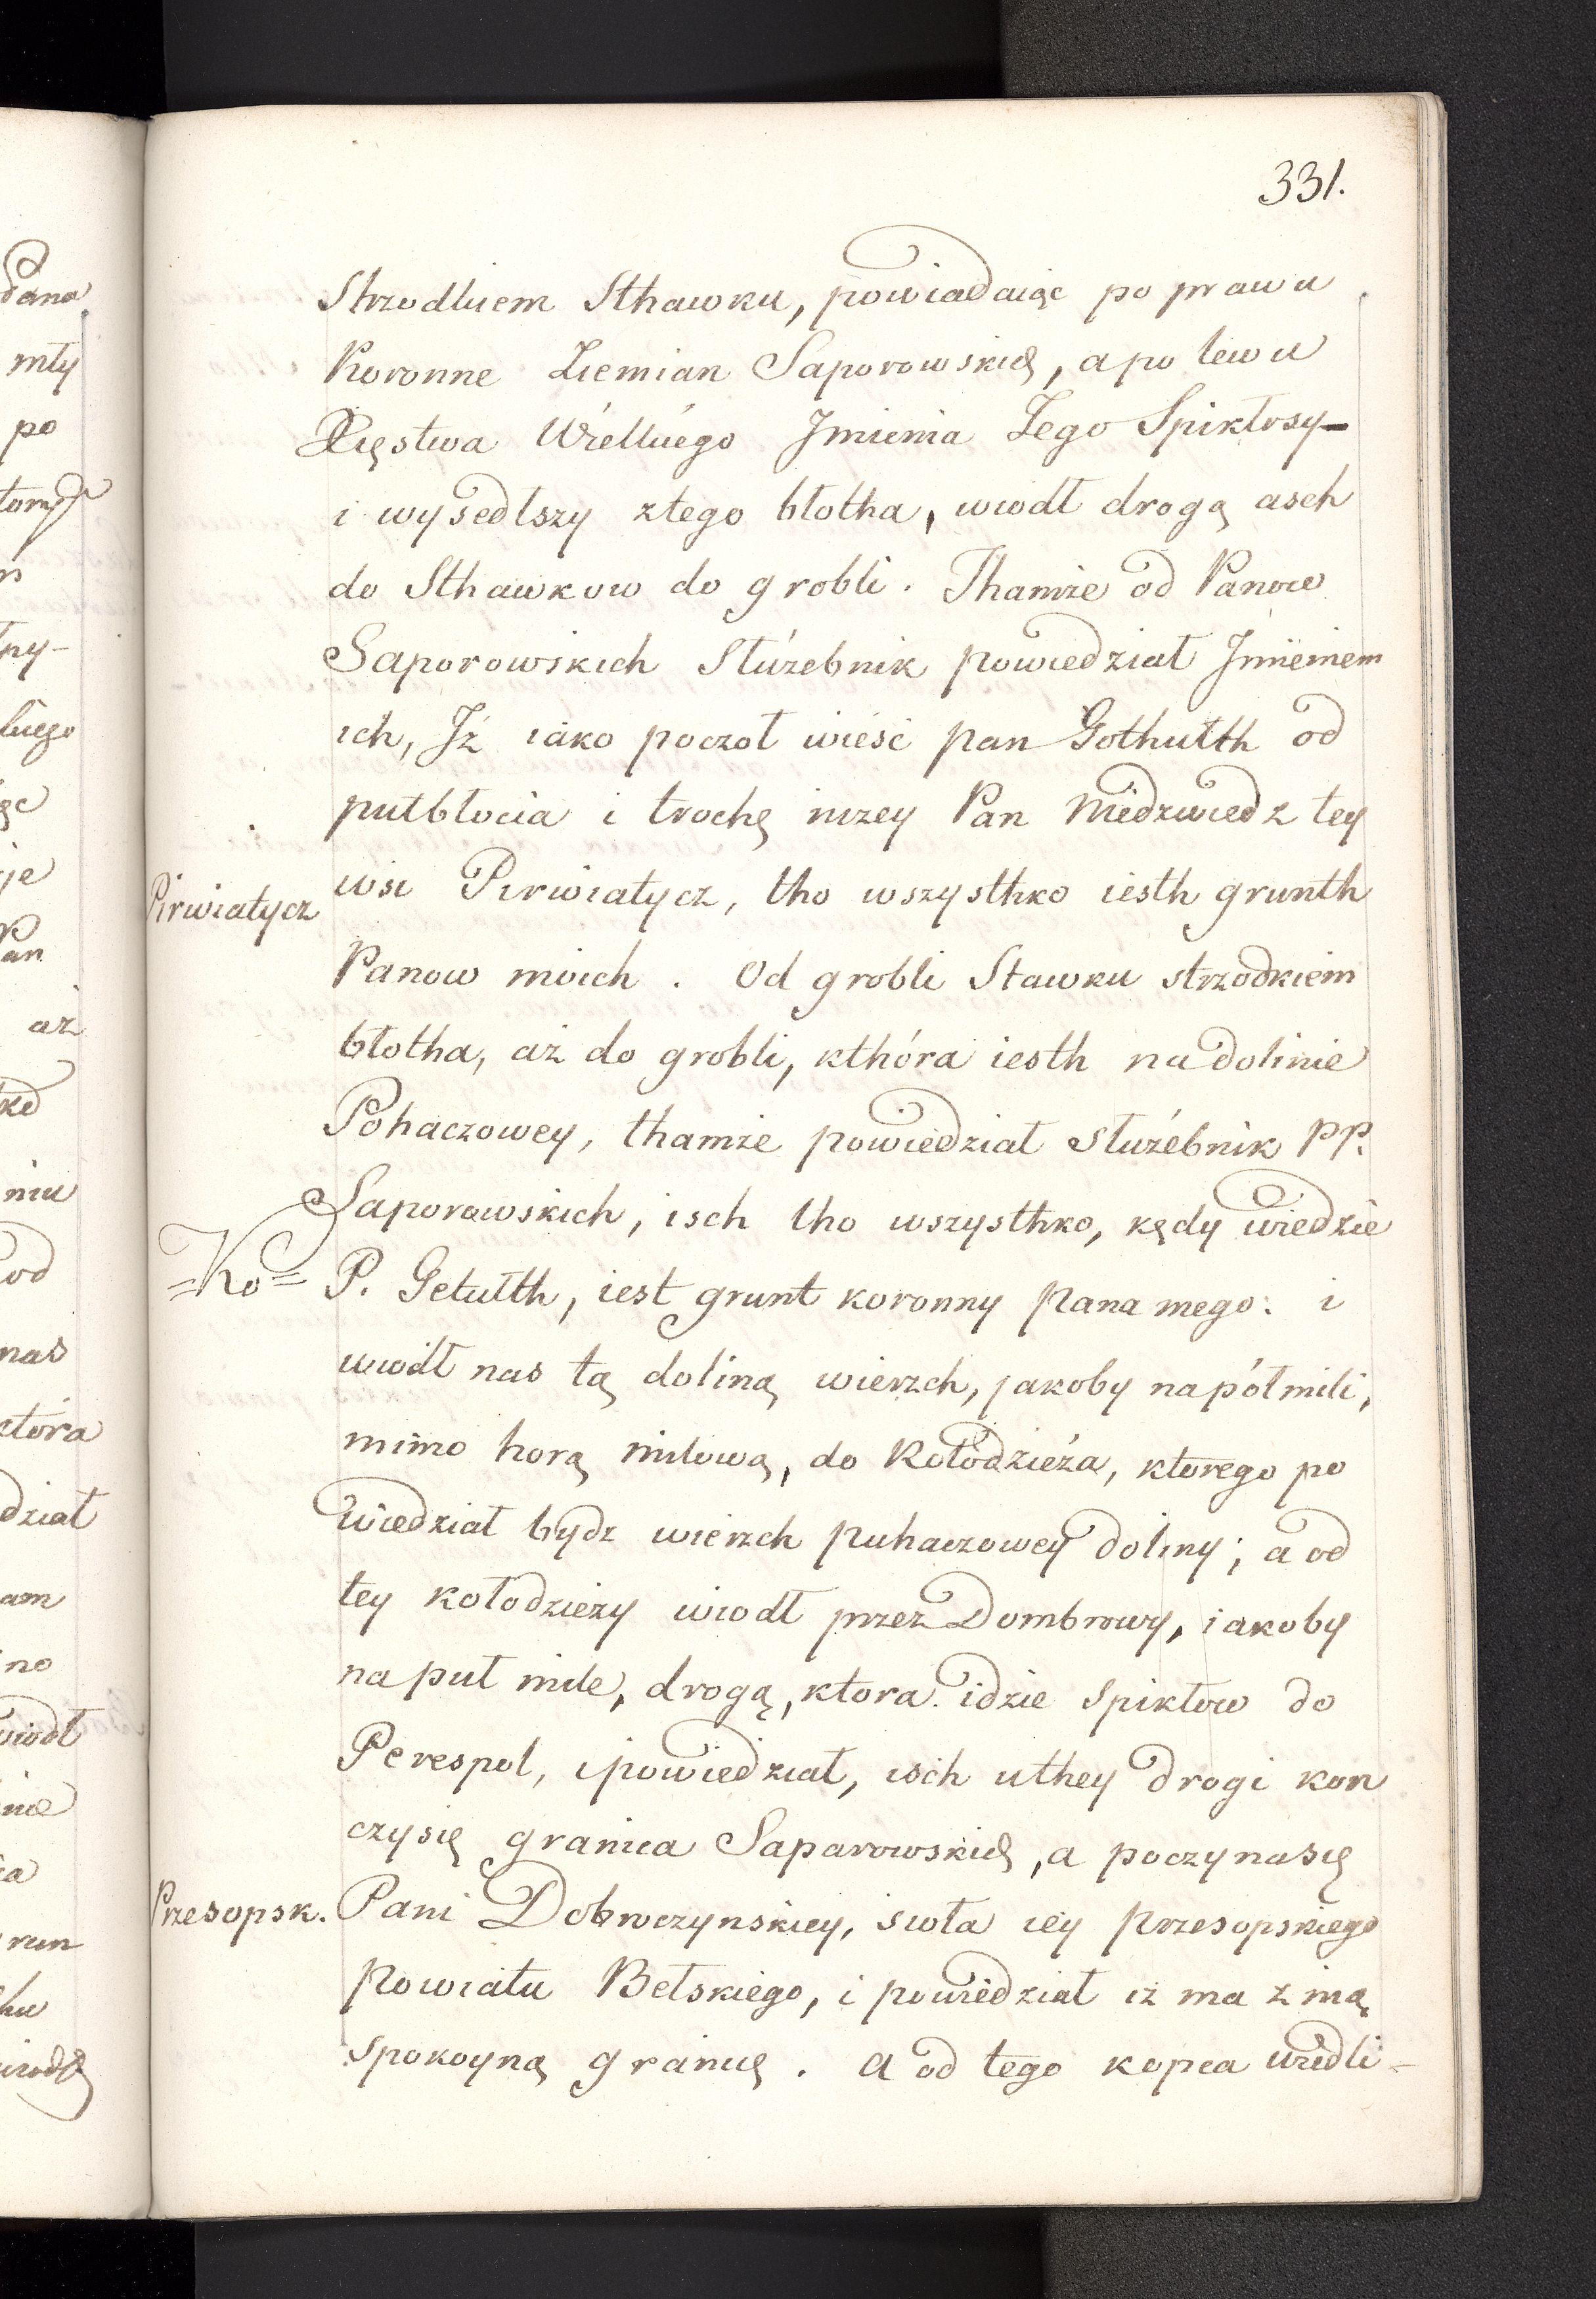 331.
Strzodkiem Sthawku, powiadaiąc po prawu
Koronne Ziemian Saporowskich, a po lewu
Xięstwa Wielkiego Jmienia Lego Spiktosy-
i wysedlszy z tego błotha, wiodł drogą asch
do Sthawkow do grobli. Thamże od Panow
Saporowskich Służebnik powiedział Jmieniem
ich, Jż iako poczoł wieść pan Gothułth od
pułbłocia i trochę niżey Pan Niedzwiedz tey
Pirwiatycz wsi Pirwiatycz, tho wszysthko iesth grunth
Panow moich. Od grobli Stawku strzodkiem
błotha, aż do grobli, kthóra iesth na dolinie
Pohaczowey, thamże powiedział służebnik PP.
Saporowskich, isch tho wszysthko, kędy wiedzie
=Ko= P. Getułth, iest grunt koronny pana mego: i
wiodł nas tą doliną wierzch, jakoby na pół mili,
mimo horą milową, do Kołodzieża, ktorego po
wiedział bydz wierzch puhaczowey doliny; a od
tey kołodzieży wiodł przez Dombrowy, iakoby
na puł mile, drogą, ktora idzie Spiktow do
Perespol, i powiedział, isch u they drogi kon
czy się granica Saparowskich, a poczyna się
Przesopsk. Pani Dobroczynskiey, sioła iey przesopskiego
powiatu Bełskiego, i powiedział iż ma z nią
spokoyną granicę. A od tego kopca wiedli-